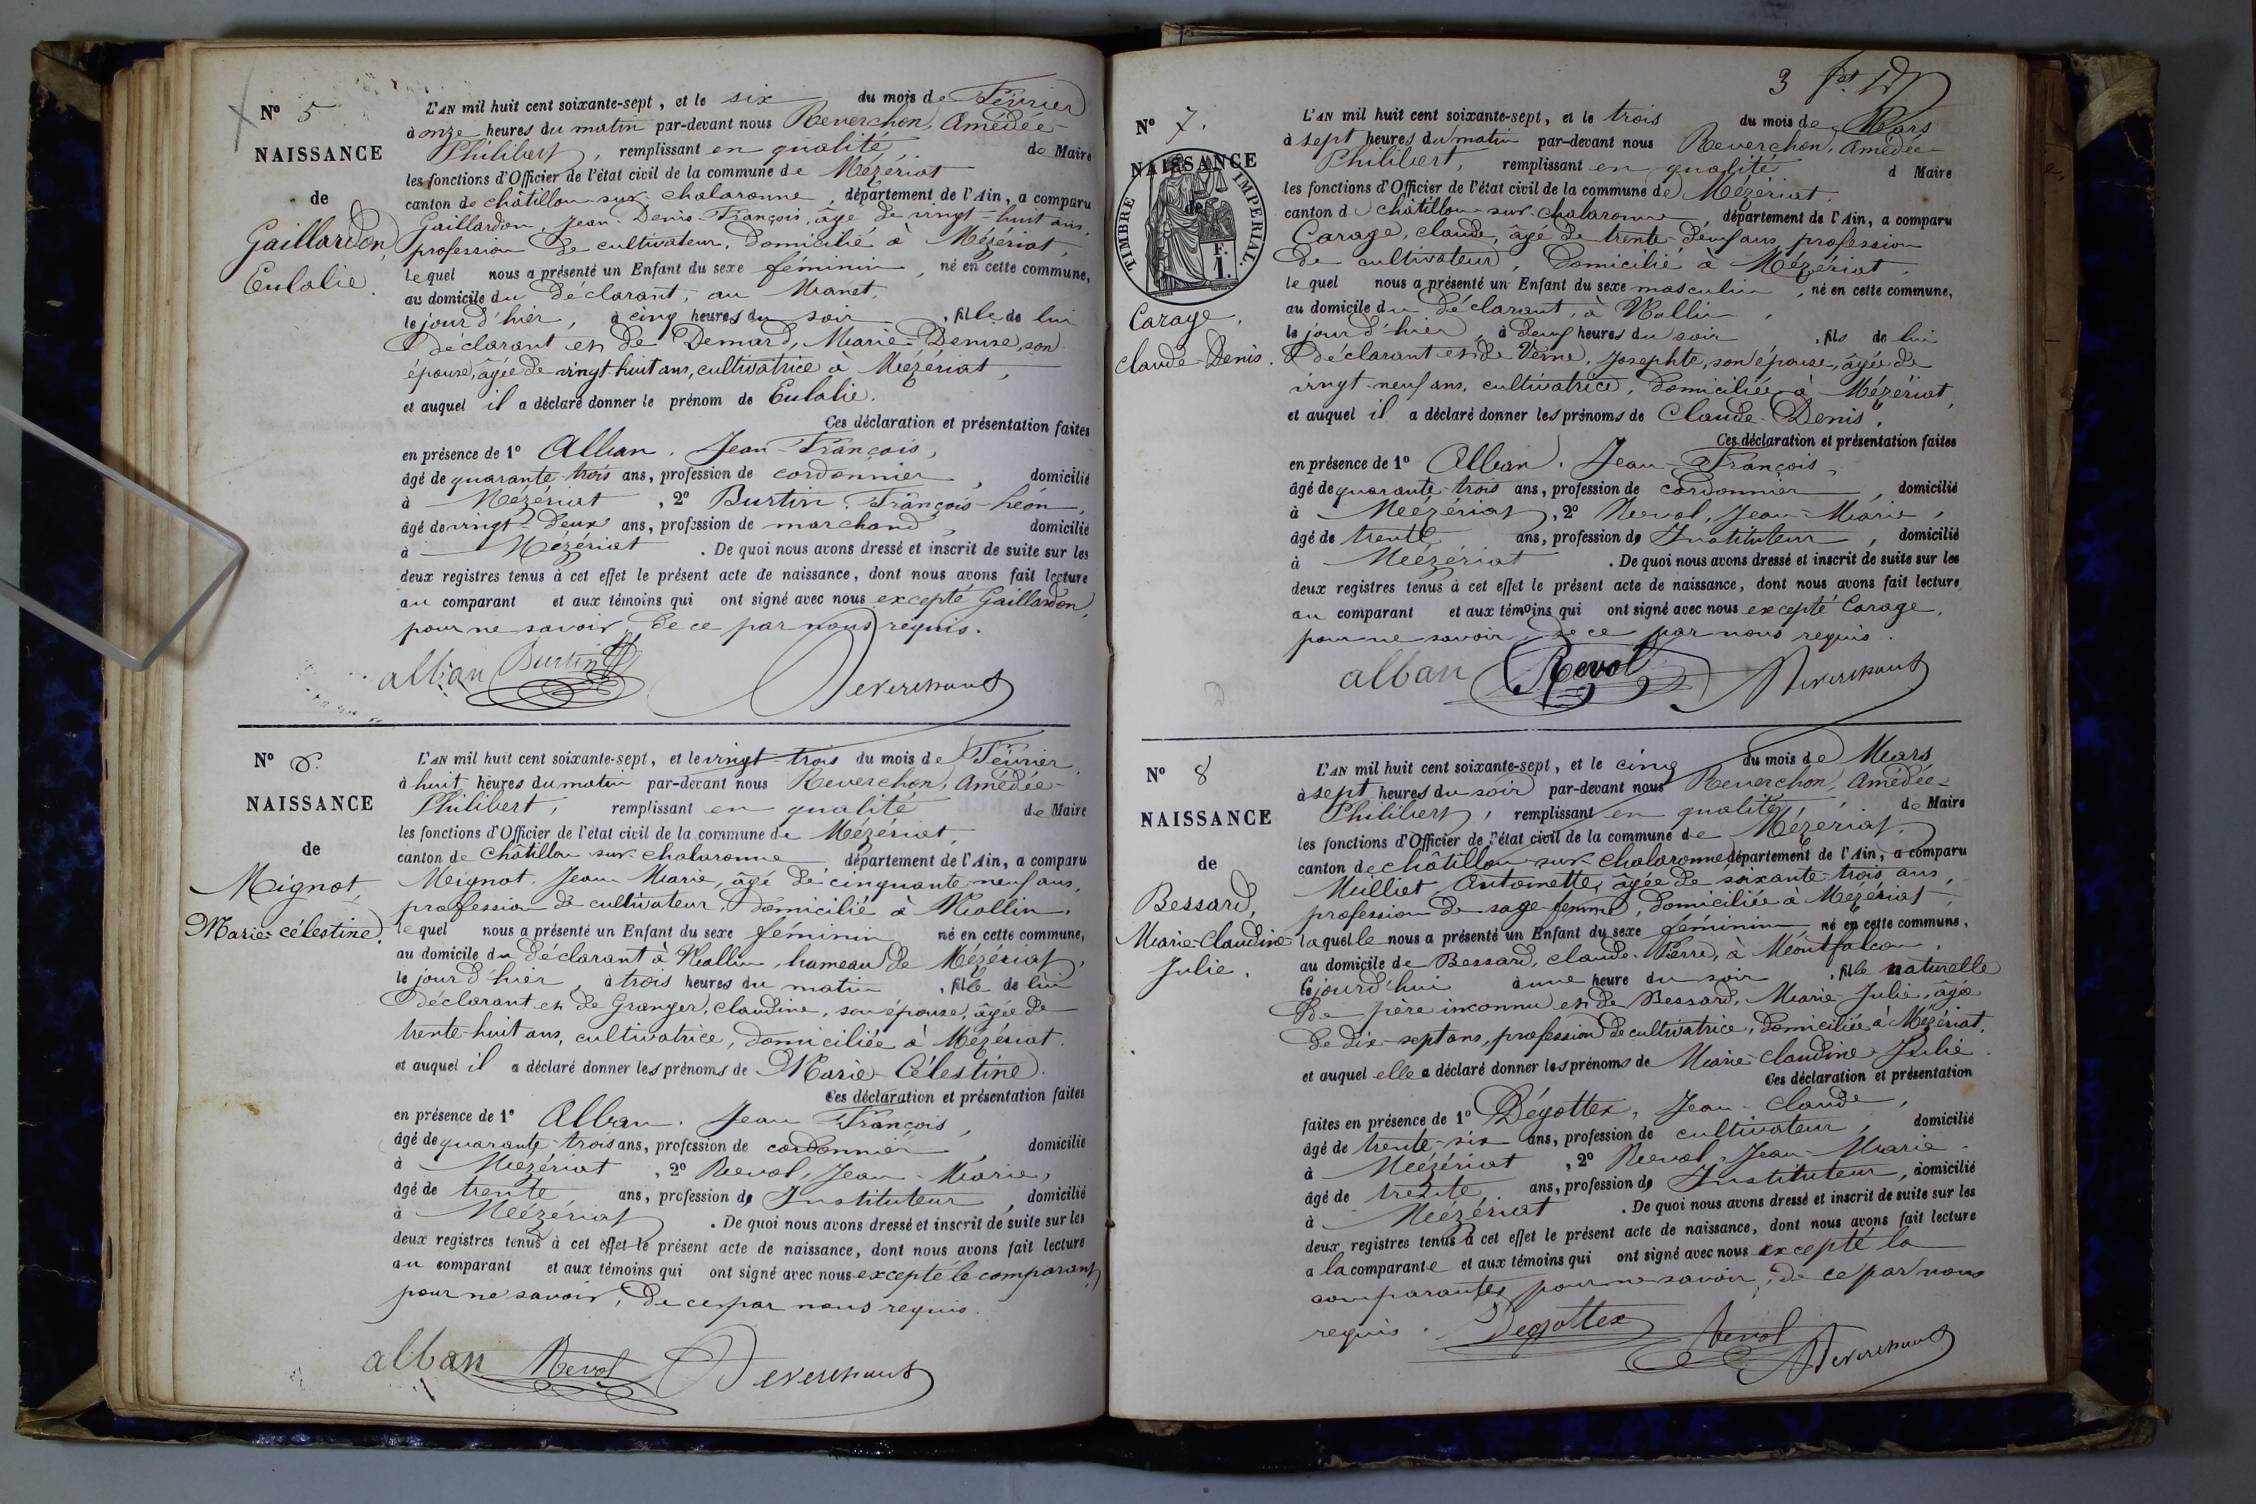 N° 5
NAISSANCE
de
Gaillardon,
Eulalie.
L'AN mil huit cent soixante-sept, et le six du mois de Février
à onze heures du matin par-devant nous Reverchon, Amédée-
Philibert, remplissant en qualité de Maire
les fonctions d'Officier de l'état civil de la commune de Mézériat
canton de châtillon sur chalaronne, département de l'Ain, a comparu
Gaillardon, Jean-Denis François, âgé de vingt-huit ans,
profession de cultivateur, domicilié à Mézériat,
lequel nous a présenté un Enfant du sexe féminin, né en cette commune,
au domicile du déclarant, au Manet,
le jour d'hier, à cinq heures du soir, fille de lui
déclarant et de Demard, Marie-Denise, son
épouse, âgée de vingt huit ans, cultivatrice à Mézériat,
et auquel il a déclaré donner le prénom de Eulalie.
Ces déclaration et présentation faites
en présence de 1° Alban, Jean-François,
âgé de quarante-trois ans, profession de cordonnier, domicilié
à Mézériat, 2° Burtin, François-Léon,
âgé de vingt-deux ans, profession de marchand, domicilié
à Mézériat. De quoi nous avons dressé et inscrit de suite sur les
deux registres tenus à cet effet le présent acte de naissance, dont nous avons fait lecture
au comparant et aux témoins qui ont signé avec nous excepté Gaillardon,
pour ne savoir, de ce par nous requis.
alban Burtin Reverchon
N° 6.
NAISSANCE
de
Mignot,
Marie-célestine.
L'AN mil huit cent soixante-sept, et le vingt-trois du mois de Février,
à huit heures du matin par-devant nous Reverchon, Amédée-
Philibert, remplissant en qualité de Maire
les fonctions d'Officier de l'état civil de la commune de Mézériat,
canton de Châtillon sur chalaronne département de l'Ain, a comparu
Mignot, Jean-Marie, âgé de cinquante-neuf ans,
profession de cultivateur, domicilié à Viollin,
lequel nous a présenté un Enfant du sexe féminin né en cette commune,
au domicile du déclarant à Viollin, hameau de Mézériat,
le jour d'hier, à trois heures du matin, fille de lui
déclarant et de Granger, claudine, son épouse, âgée de
trente-huit ans, cultivatrice, domiciliée à Mézériat.
et auquel il a déclaré donner les prénoms de Marie-Célestine.
Ces déclaration et présentation faites
en présence de 1° Alban, Jean François,
âgé de quarante-trois ans, profession de cordonnier, domicilié
à Mézériat, 2° Revol, Jean-Marie,
âgé de trente, ans, profession de Instituteur, domicilié
à Mézériat. De quoi nous avons dressé et inscrit de suite sur les
deux registres tenus à cet effet le présent acte de naissance, dont nous avons fait lecture
au comparant et aux témoins qui ont signé avec nous excepté le comparant,
pour ne savoir, de ce par nous requis.
alban Revol Reverchon
3
N° 7.
NAISSANCE
de
TIMBRE IMPERIAL.
F.
1.
Carage,
claude-Denis.
L'AN mil huit cent soixante-sept, et le trois du mois de Mars
à sept heures du matin par-devant nous Reverchon, Amédée-
Philibert, remplissant en qualité d Maire
les fonctions d'Officier de l'état civil de la commune de Mézériat,
canton d châtillon sur chalaronne, département de l'Ain, a comparu
Carage, claude, âgé de trente-deux ans, profession
de cultivateur, domicilié à Mézériat,
lequel nous a présenté un Enfant du sexe masculin, né en cette commune,
au domicile du déclarant, à Viollin,
le jour d'hier, à deux heures du soir, fils de lui
déclarant et de Verne, Josephte, son épouse, âgée de
vingt-neuf ans, cultivatrice, domiciliée à Mézériat,
et auquel il a déclaré donner les prénoms de Claude-Denis,
Ces déclaration et présentation faites
en présence de 1° Alban, Jean-François,
âgé de quarante-trois ans, profession de cordonnier, domicilié
à Mézériat, 2° Revol, Jean-Marie,
âgé de trente ans, profession de Instituteur, domicilié
à Mézériat. De quoi nous avons dressé et inscrit de suite sur les
deux registres tenus à cet effet le présent acte de naissance, dont nous avons fait lecture
au comparant et aux témoins qui ont signé avec nous excepté Carage,
pour ne savoir, de ce par nous requis.
alban Revol Reverchon
N° 8
NAISSANCE
de
Bessard,
Marie-Claudine
Julie.
L'AN mil huit cent soixante-sept, et le cinq du mois de Mars
à sept heures du soir par-devant nous Reverchon, Amédée-
Philibert, remplissant en qualité, de Maire
les fonctions d'Officier de l'état civil de la commune de Mézériat,
canton de châtillon sur chalaronne département de l'Ain, a comparu
Milliet, Antoinette, âgée de soixante-trois ans,
profession de sage femme, domiciliée à Mézériat,
laquelle nous a présenté un Enfant du sexe féminin né en cette commune,
au domicile de Bessard, claude-Pierre, à Montfalcon,
cejourd'hui à une heure du soir, fille naturelle
de père inconnu et de Bessard, Marie-Julie, âgée
de dix-sept ans, profession de cultivatrice, domiciliée à Mézériat.
et auquel elle a déclaré donner les prénoms de Marie-claudine Julie.
Ces déclaration et présentation
faites en présence de 1° Dégottex, Jean-claude,
âgé de trente-six ans, profession de cultivateur, domicilié
à Mézériat, 2° Revol, Jean-Marie
âgé de trente, ans, profession de Instituteur, domicilié
à Mézériat. De quoi nous avons dressé et inscrit de suite sur les
deux registres tenus à cet effet le présent acte de naissance, dont nous avons fait lecture
a la comparante et aux témoins qui ont signé avec nous excepté la
comparante, pour ne savoir, de ce par nous
requis. Degottex Revol Reverchon